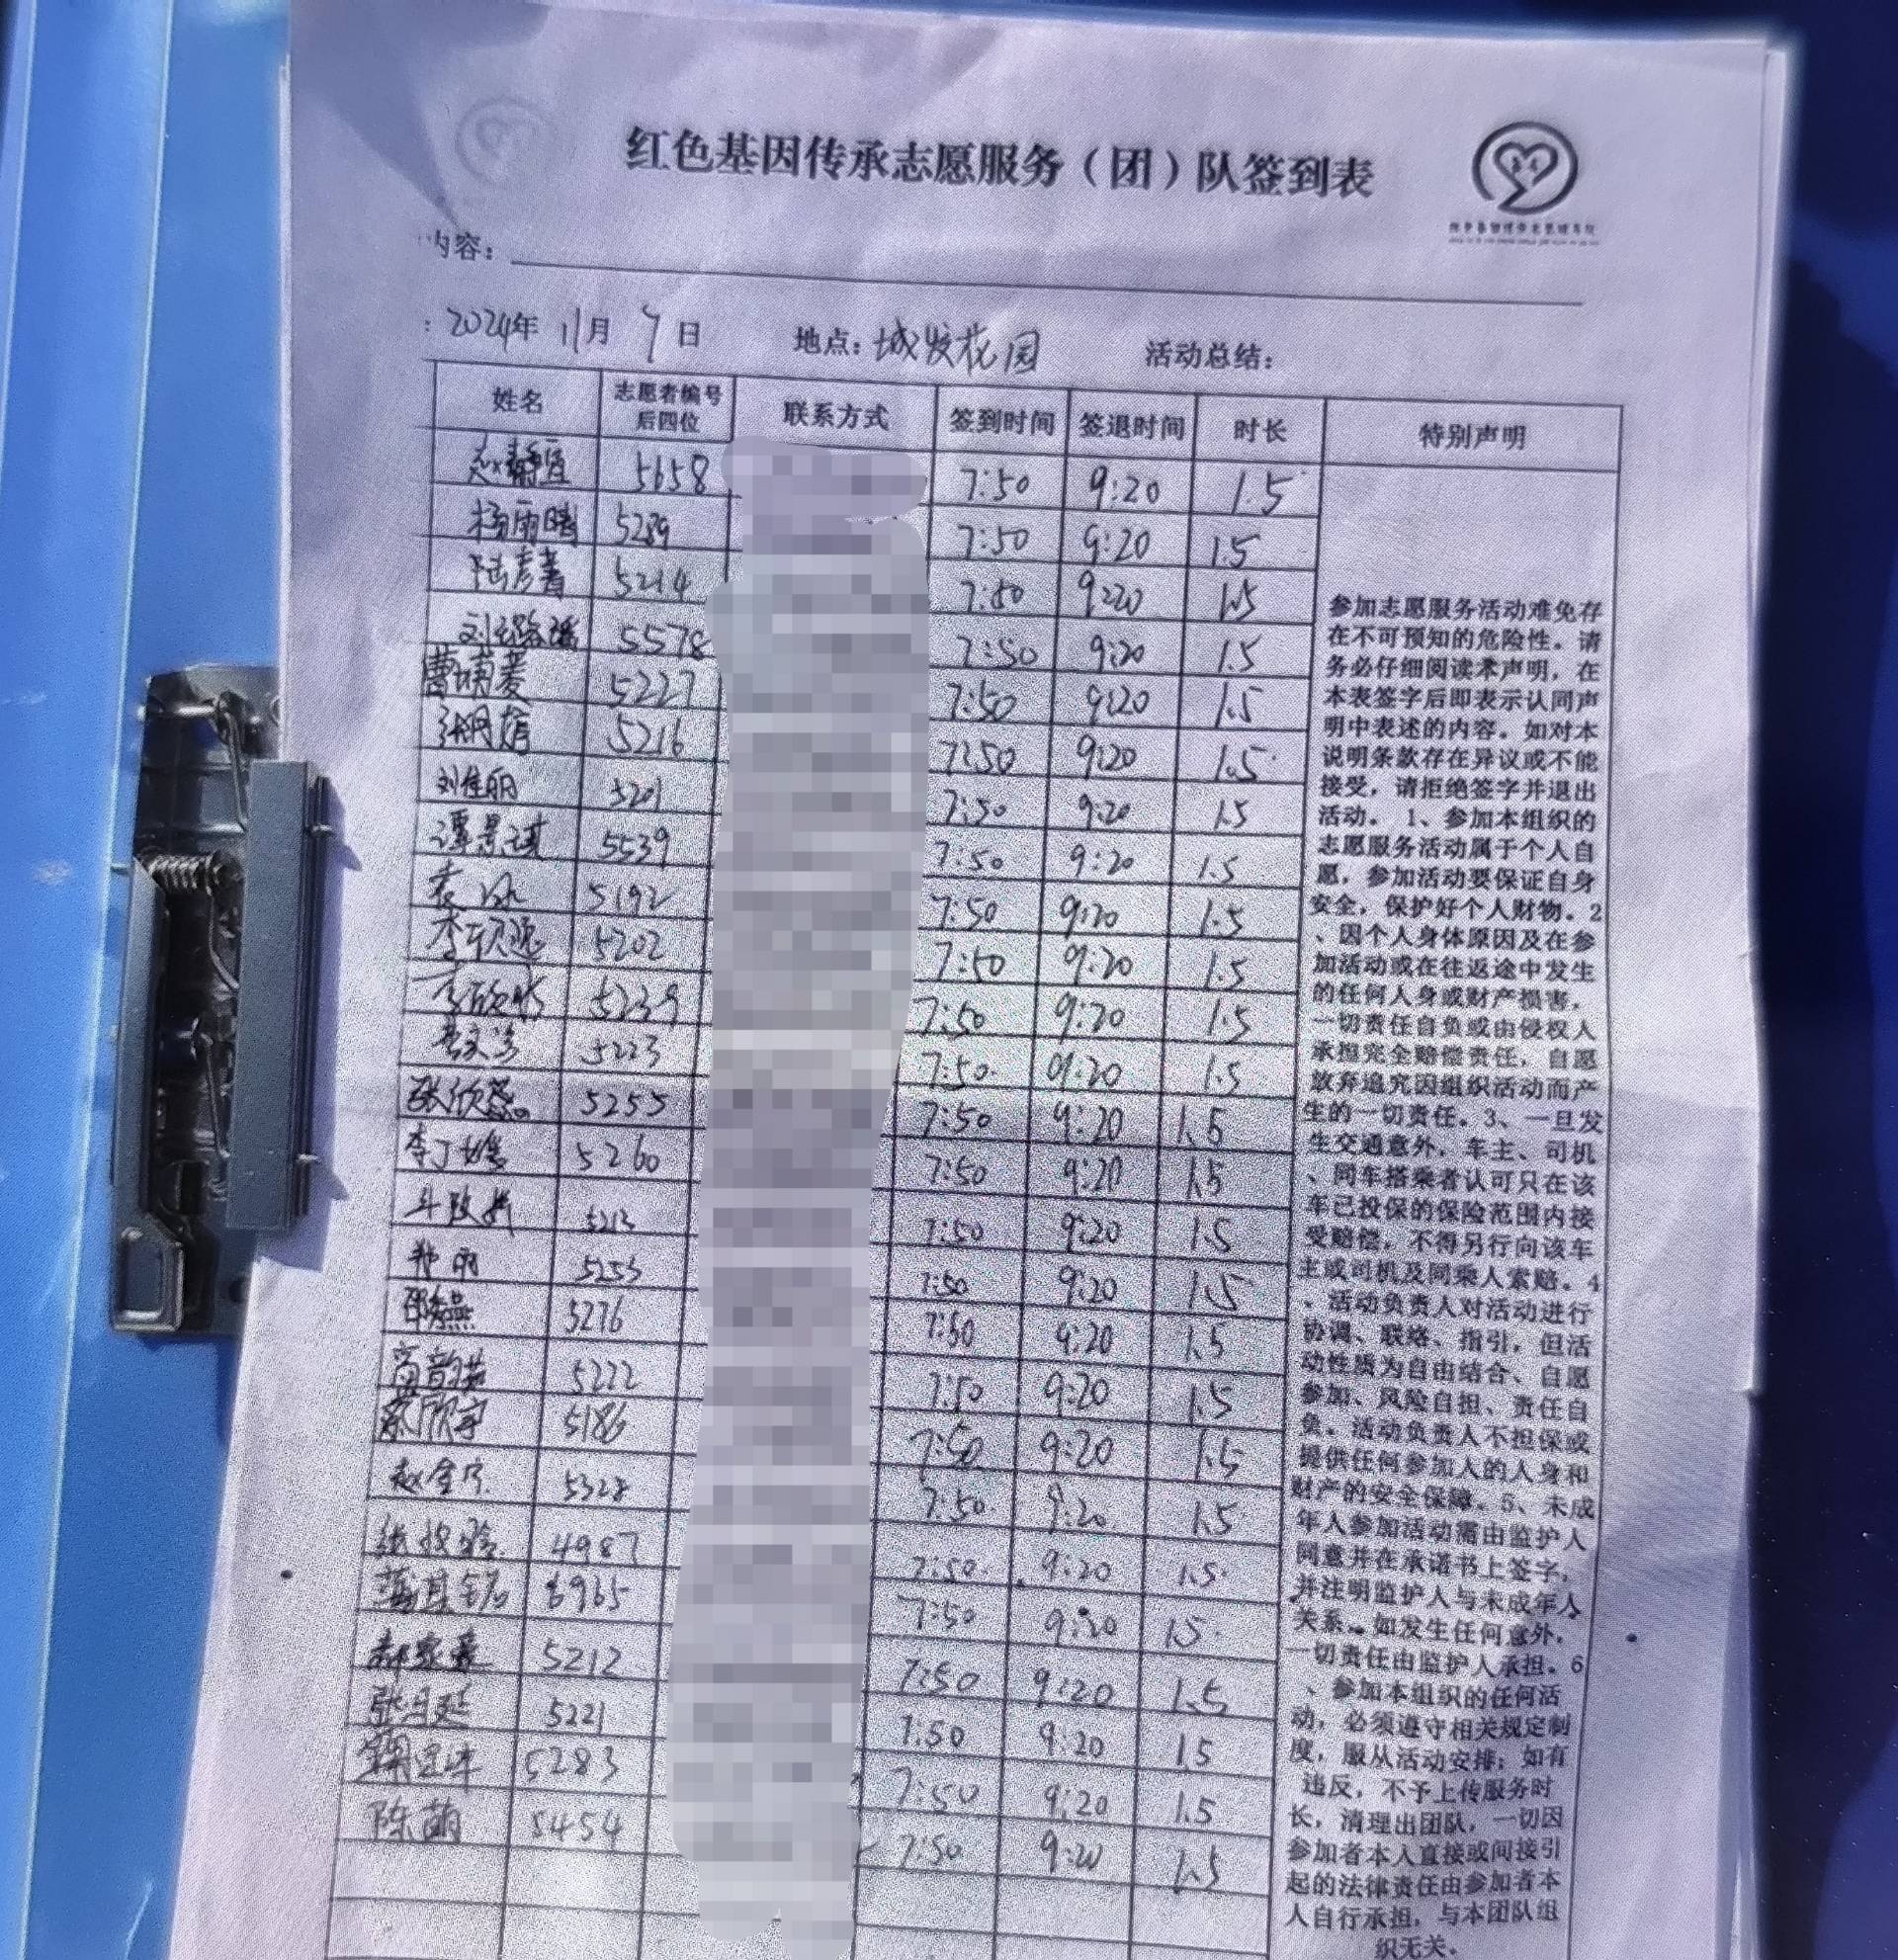 红色基因传承志愿服务（团）队签到表
内容：
：2024年 11月 7日 地点：城发花园 活动总结：
姓名 志愿者编号后四位 联系方式 签到时间 签退时间 时长 特别声明
赵静宜 5658 7:50 9:20 1.5
杨雨晴 5289 7:50 9:20 1.5
陆彦蓍 5214 7:50 9:20 1.5
刘 5578 7:50 9:20 1.5
曹萌菱 5227 7:50 9:20 1.5
张明婧 5216 7:50 9:20 1.5
刘佳丽 5201 7:50 9:20 1.5
谭景琪 5539 7:50 9:20 1.5
袁 5192 7:50 9:20 1.5
李欣 5202 7:50 9:20 1.5
5239 7:50 9:20 1.5
5223 7:50 9:20 1.5
张欣蕊 5255 7:50 9:20 1.5
李丁 5260 7:50 9:20 1.5
5213 7:50 9:20 1.5
5253 7:50 9:20 1.5
5276 7:50 9:20 1.5
高韵茹 5222 7:50 9:20 1.5
蔡欣宇 5186 7:50 9:20 1.5
赵金 5328 7:50 9:20 1.5
张 4987 7:50 9:20 1.5
6965 7:50 9:20 1.5
郝家 5212 7:50 9:20 1.5
张月 5221 7:50 9:20 1.5
5283 7:50 9:20 1.5
陈萌 5454 7:50 9:20 1.5
参加志愿服务活动难免存
在不可预知的危险性。请
务必仔细阅读本声明，在
本表签字后即表示认同声
明中表述的内容。如对本
说明条款存在异议或不能
接受，请拒绝签字并退出
活动。 1、参加本组织的
志愿服务活动属于个人自
愿，参加活动要保证自身
安全，保护好个人财物。2
、因个人身体原因及在参
加活动或在往返途中发生
的任何人身或财产损害，
一切责任自负或由侵权人
承担完全赔偿责任，自愿
放弃追究因组织活动而产
生的一切责任。3、一旦发
生交通意外，车主、司机
、同车搭乘者认可只在该
车已投保的保险范围内接
受赔偿，不得另行向该车
主或司机及同乘人索赔。4
、活动负责人对活动进行
协调、联络、指引，但活
动性质为自由结合、自愿
参加、风险自担、责任自
负。活动负责人不担保或
提供任何参加人的人身和
财产的安全保障。5、未成
年人参加活动需由监护人
同意并在承诺书上签字，
并注明监护人与未成年人
关系。如发生任何意外，
一切责任由监护人承担。6
、参加本组织的任何活
动，必须遵守相关规定制
度，服从活动安排；如有
违反，不予上传服务时
长，清理出团队，一切因
参加者本人直接或间接引
起的法律责任由参加者本
人自行承担，与本团队组
织无关。